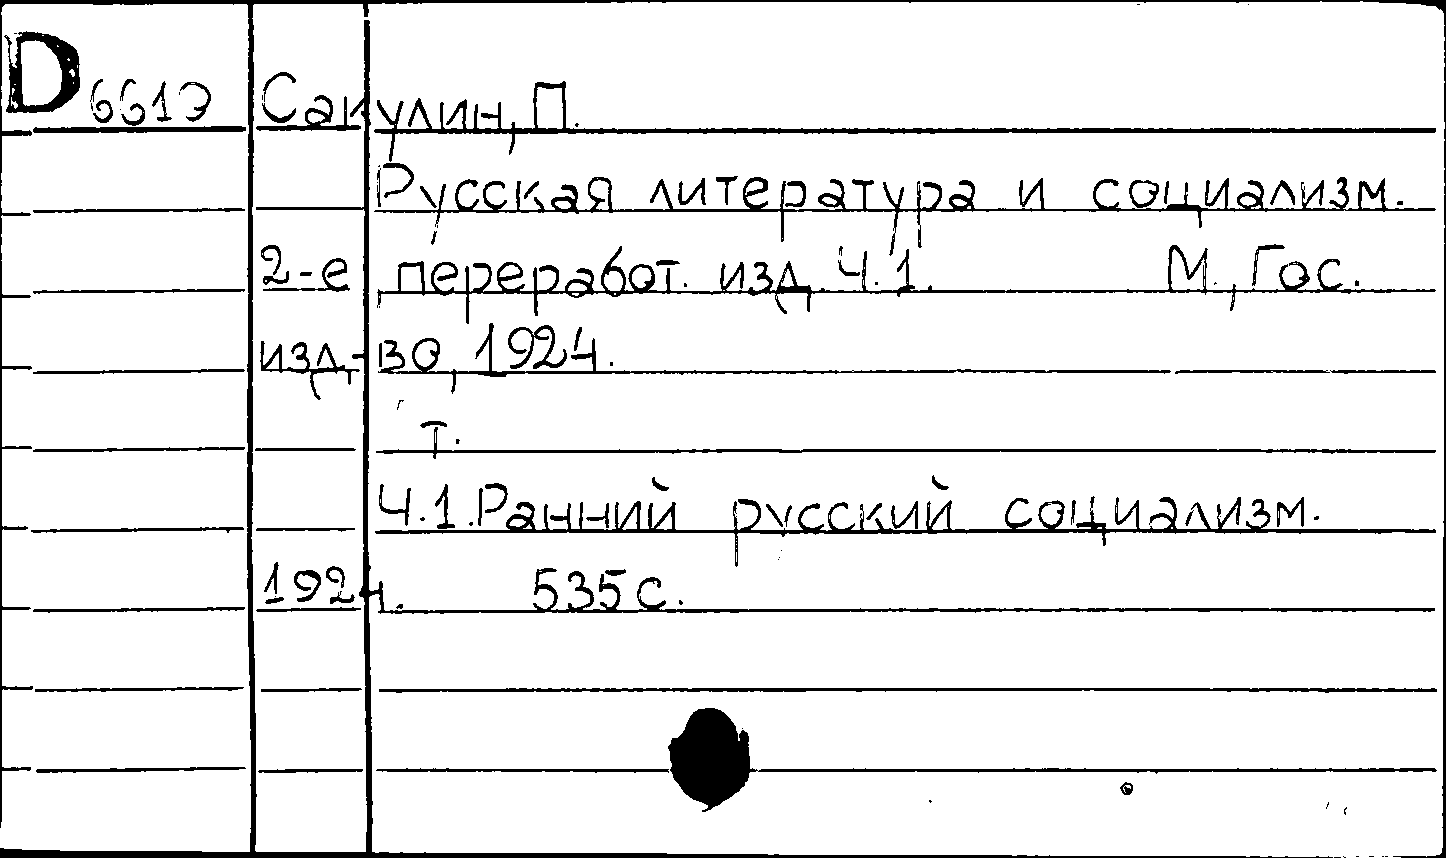 D 6619 Сакулин, П.
Русская литература и социализм.
2-е, переработ. изд. Ч.1. М., Гос.
изд-во, 1924.
т.
Ч.1. Ранний русский социализм.
1924. 535 с.